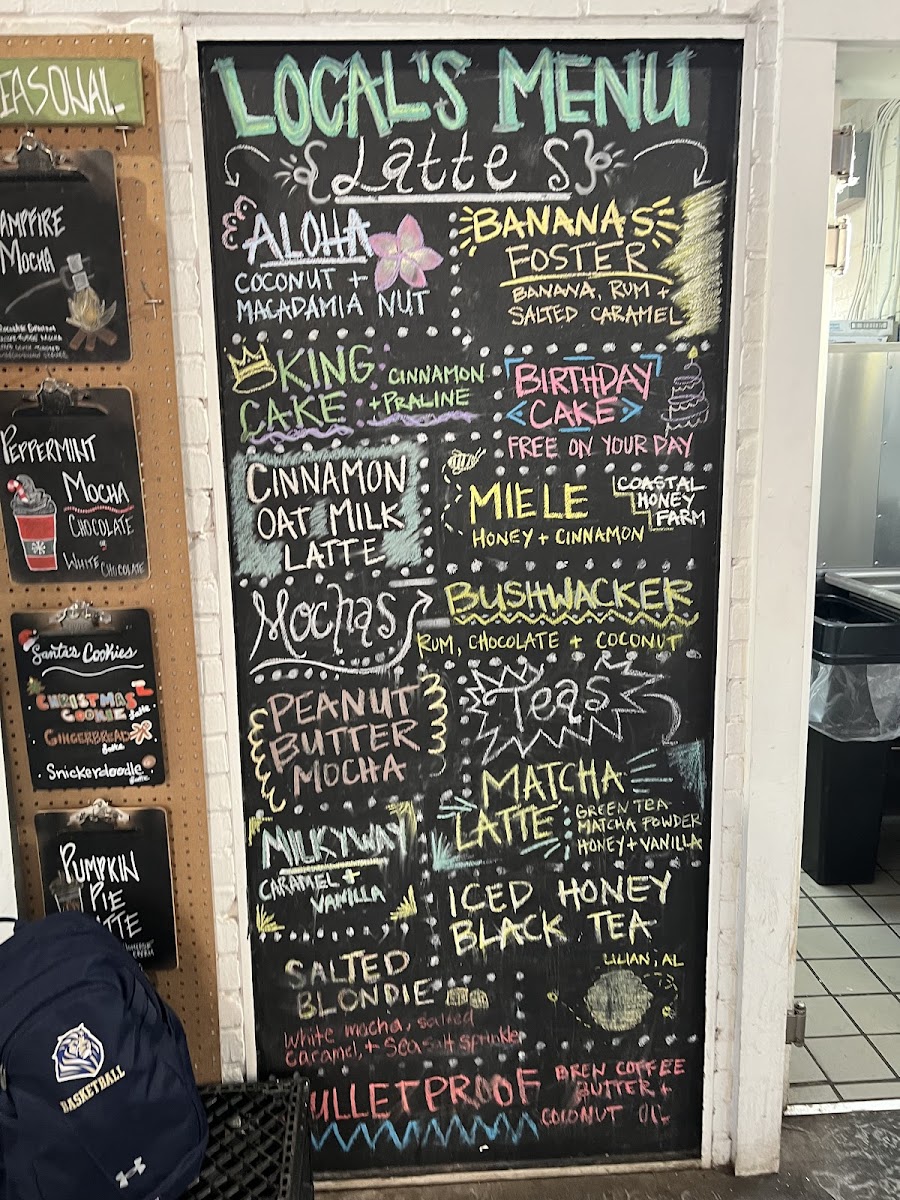 EASONAL
AMPFIRE
MOCHA
PEPPERMINT
MOCHA
CHOCOLATE
OR
WHITE CHOCOLATE
Santa's Cookies
CHRISTMAS
COOKIE latte
GINGERBREAD
latte
Snickerdoodle
latte
PUMPKIN
PIE
TTE
BASKETBALL
LOCAL'S MENU
Lattes
ALOHA
COCONUT +
MACADAMIA NUT
BANANAS
FOSTER
BANANA, RUM +
SALTED CARAMEL
KING
CAKE
CINNAMON
+PRALINE
BIRTHDAY
CAKE
FREE ON YOUR DAY
CINNAMON
OAT MILK
LATTE
MIELE
HONEY + CINNAMON
COASTAL
HONEY
FARM
Mochas
BUSHWACKER
RUM, CHOCOLATE + COCONUT
PEANUT
BUTTER
MOCHA
MILKYWAY
CARAMEL +
VANILLA
SALTED
BLONDIE
White mocha, salted
caramel, + Sea salt sprinkle
Teas
MATCHA
LATTE
GREEN TEA
MATCHA POWDER
HONEY + VANILLA
ICED HONEY
BLACK TEA
LILIAN, AL
ULLETPROOF
BREN COFFEE
BUTTER +
COCONUT OIL